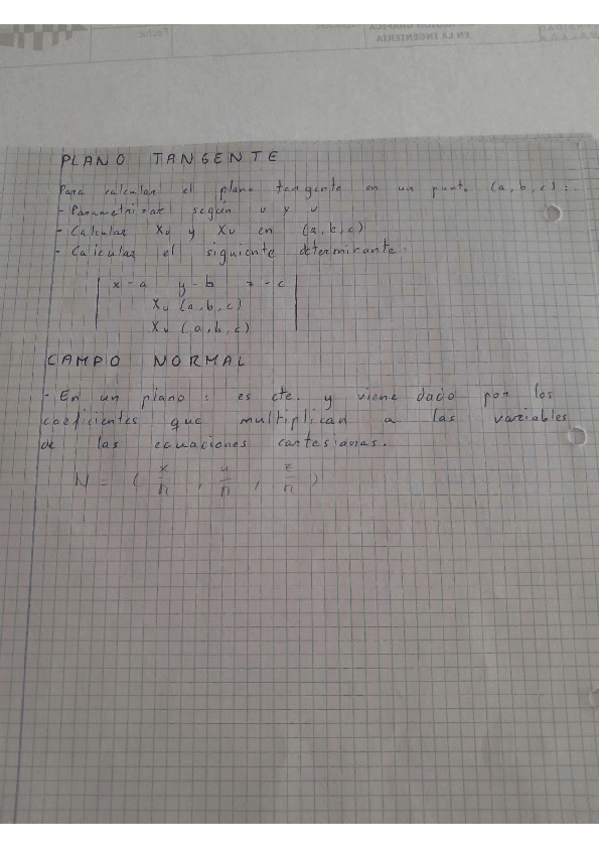 EN LA INGENIERIA
Fecha:
PLANO TANGENTE
Para calcular el plano tangente en un punto (a,b,c):
- Parametrizar según u y v
- Calcular Xu y Xv en (a,b,c)
- Calcular el siguiente determinante:
x-a y-b z-c
Xu (a,b,c)
Xv (a,b,c)
CAMPO NORMAL
- En un plano: es cte. y viene dado por los
coeficientes que multiplican a las variables
de las ecuaciones cartesianas.
N = ( x/n , y/n , z/n )